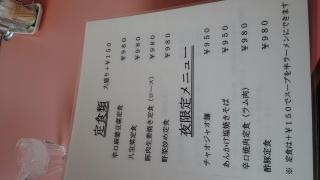 定食類
大盛り+￥150
辛口麻婆豆腐定食 ￥980
八宝菜定食 ￥980
豚肉生姜焼き定食（ロース） ￥980
野菜炒め定食 ￥980
夜限定メニュー
チャオジャオ麺 ￥950
あんかけ塩焼きそば ￥950
辛口焼肉定食（ラム肉） ￥980
酢豚定食 ￥980
※ 定食は+￥150でスープを半ラーメンにできます